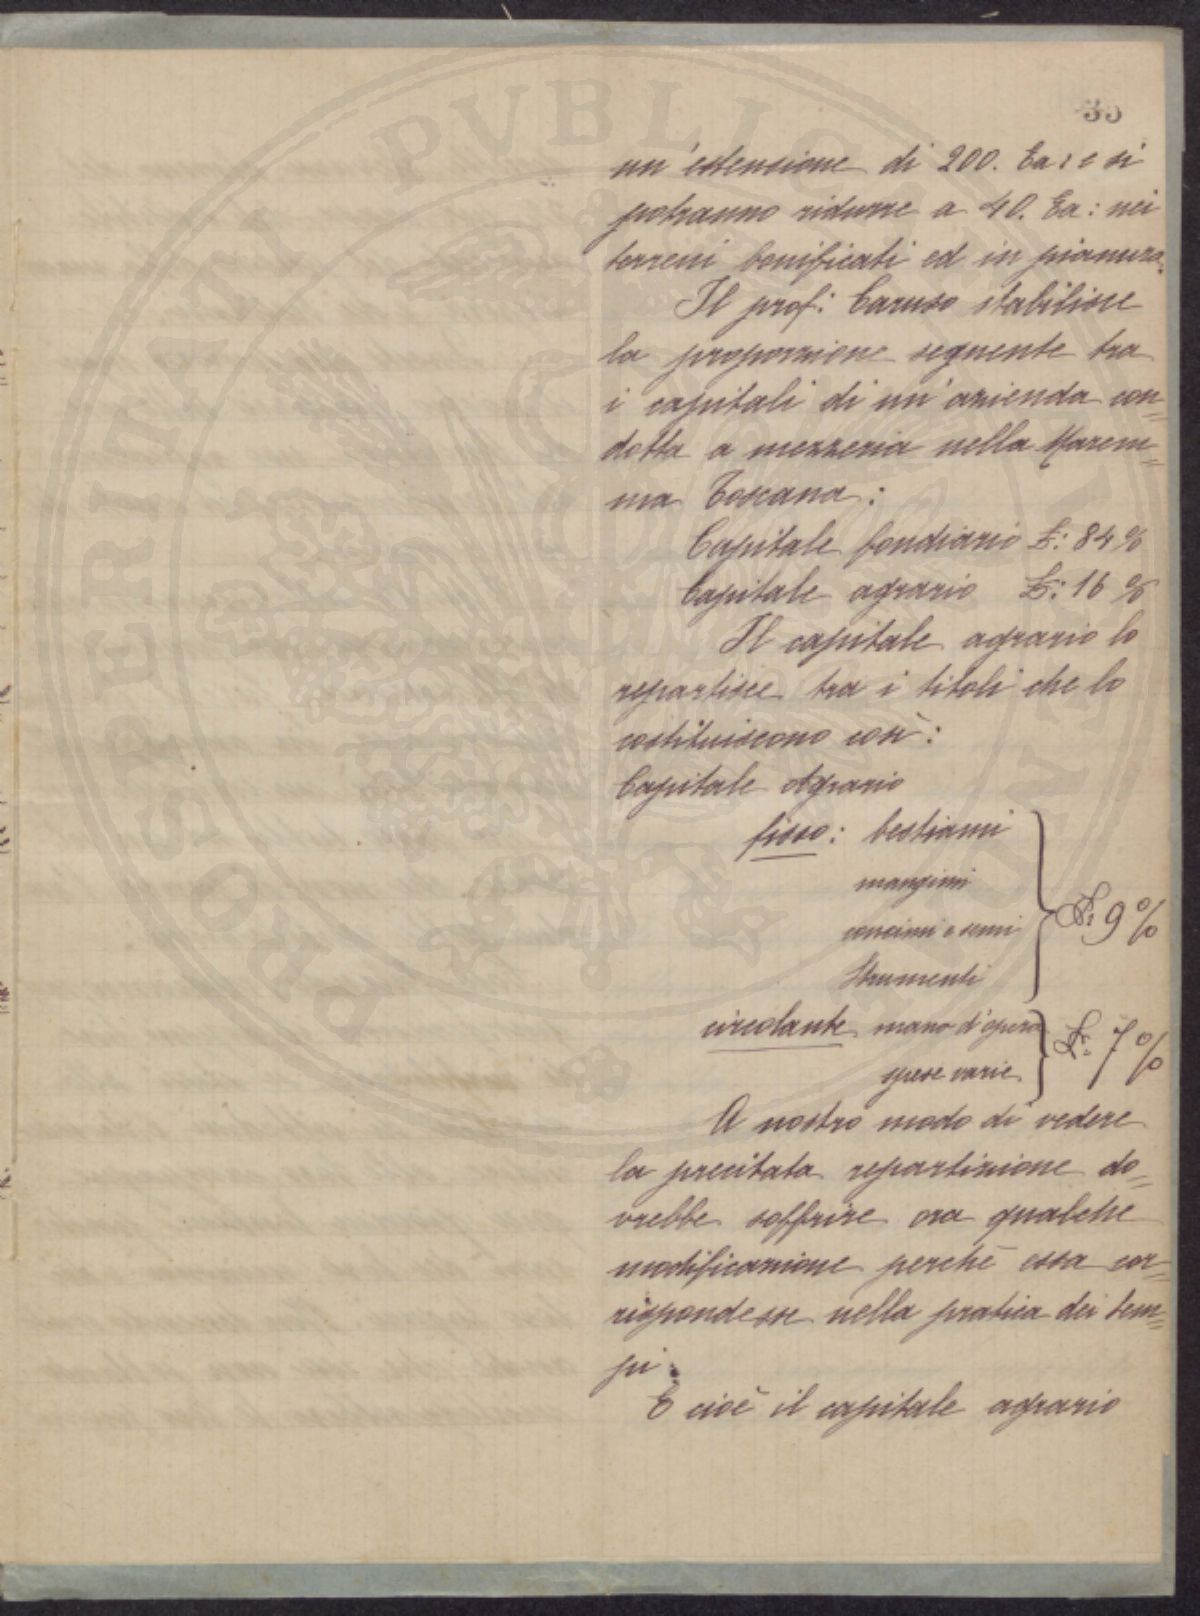 35
un'estensione di 200. Ea: e si
potranno ridurre a 40. Ea: nei
terreni bonificati ed in pianura.
Il prof: Caruso stabilisce
la proporzione seguente tra
i capitali di un'azienda con=
dotta a mezzeria nella Marem=
ma Toscana:
Capitale fondiario £: 84 %
Capitale agrario £: 16 %
Il capitale agrario lo
repartisce tra i titoli che lo
costituiscono così:
Capitale Agrario
fisso: bestiami
mangimi
concimi e semi
Strumenti
£: 9 %
circolante mano d'opera
spese varie
£: 7 %
A nostro modo di vedere
la precitata repartizione do=
vrebbe soffrire ora qualche
modificazione perchè essa cor=
rispondesse nella pratica dei tem=
pi.
E cioè il capitale agrario
PROSPERITATI PVBLICAE